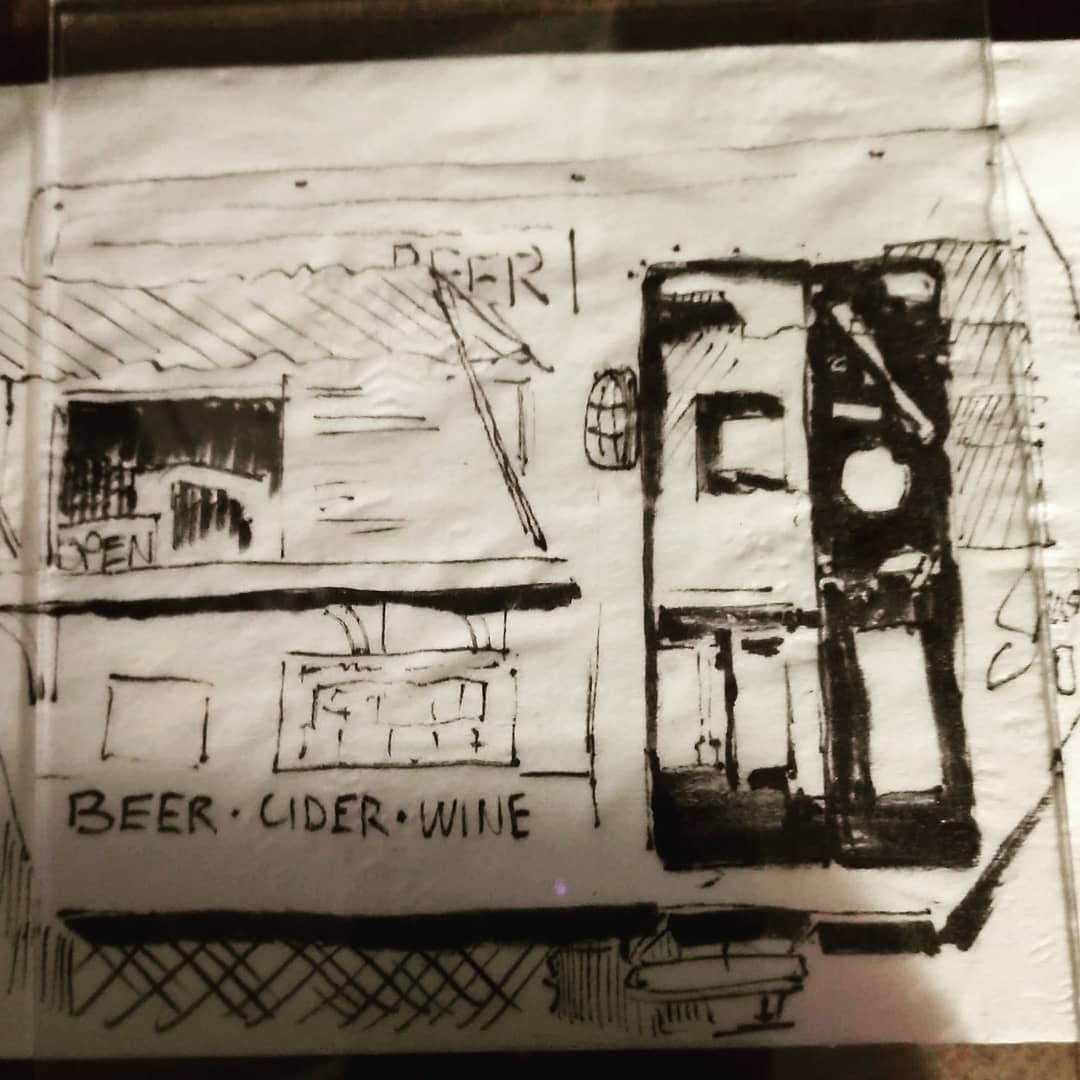 BEER
OPEN
BEER · CIDER · WINE